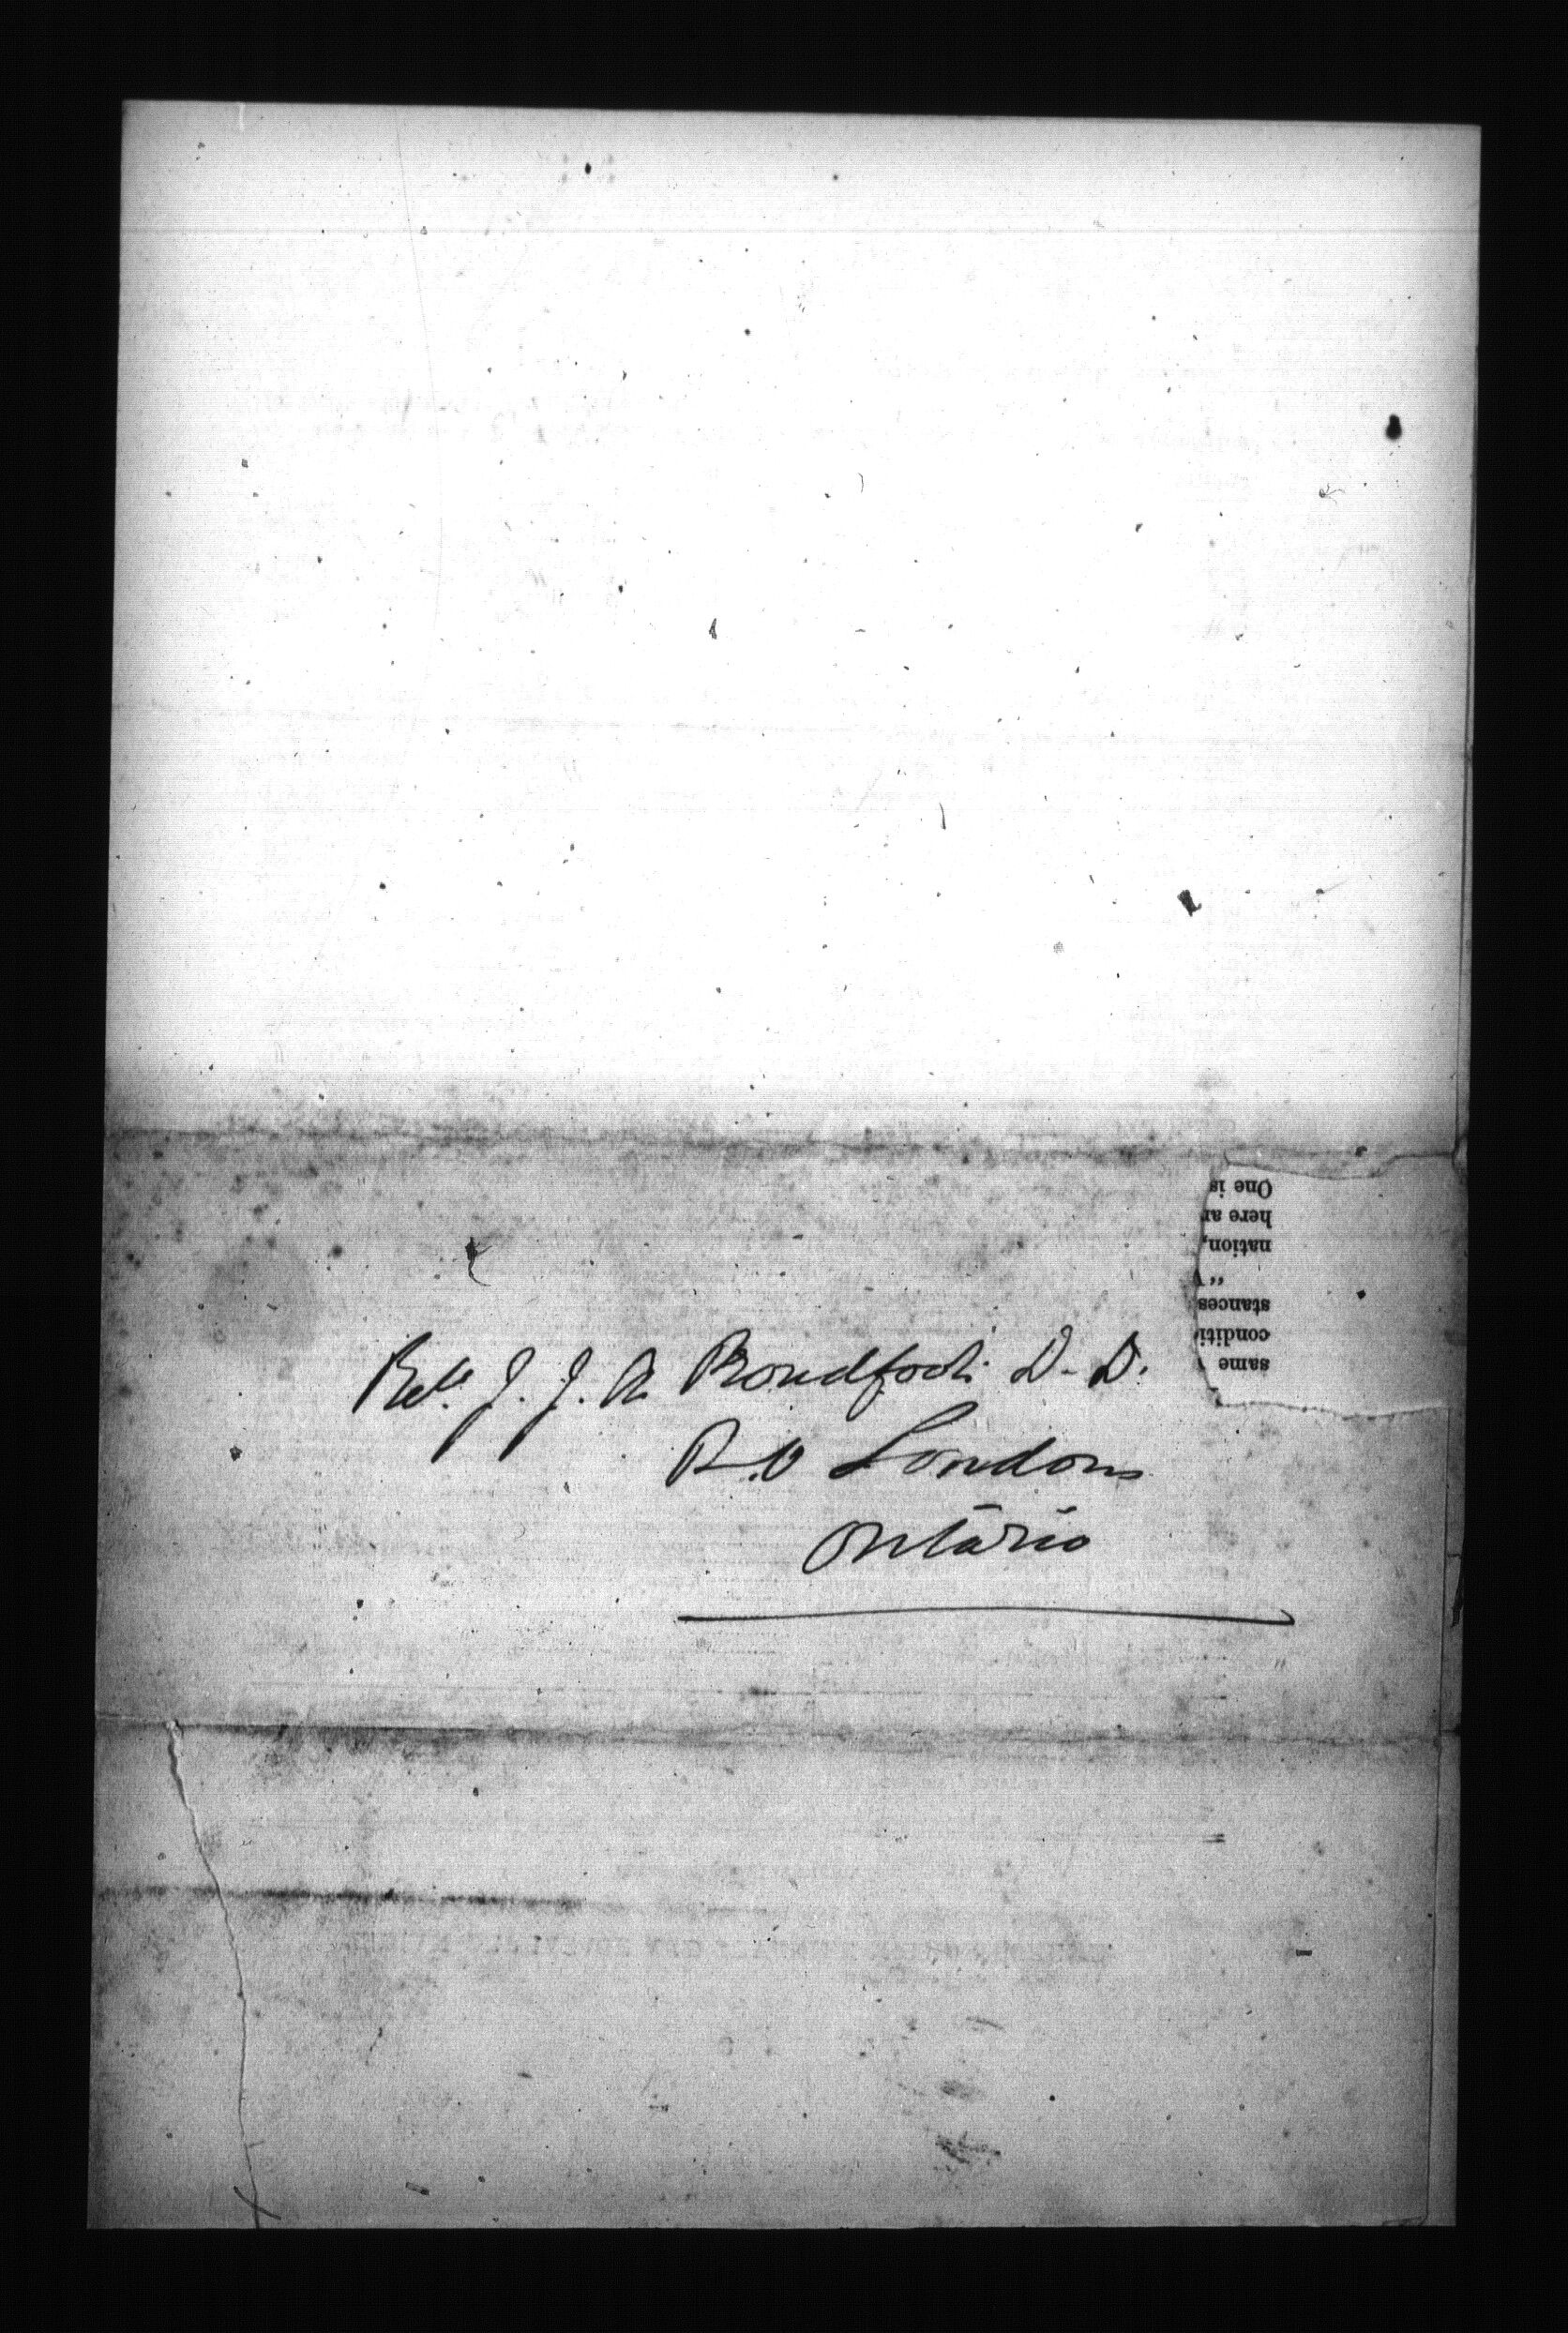 Rev. J. J. A. Proudfoot D. D.
P.O London
Ontario
same
conditi
stances
"
nation,
here ar
One is